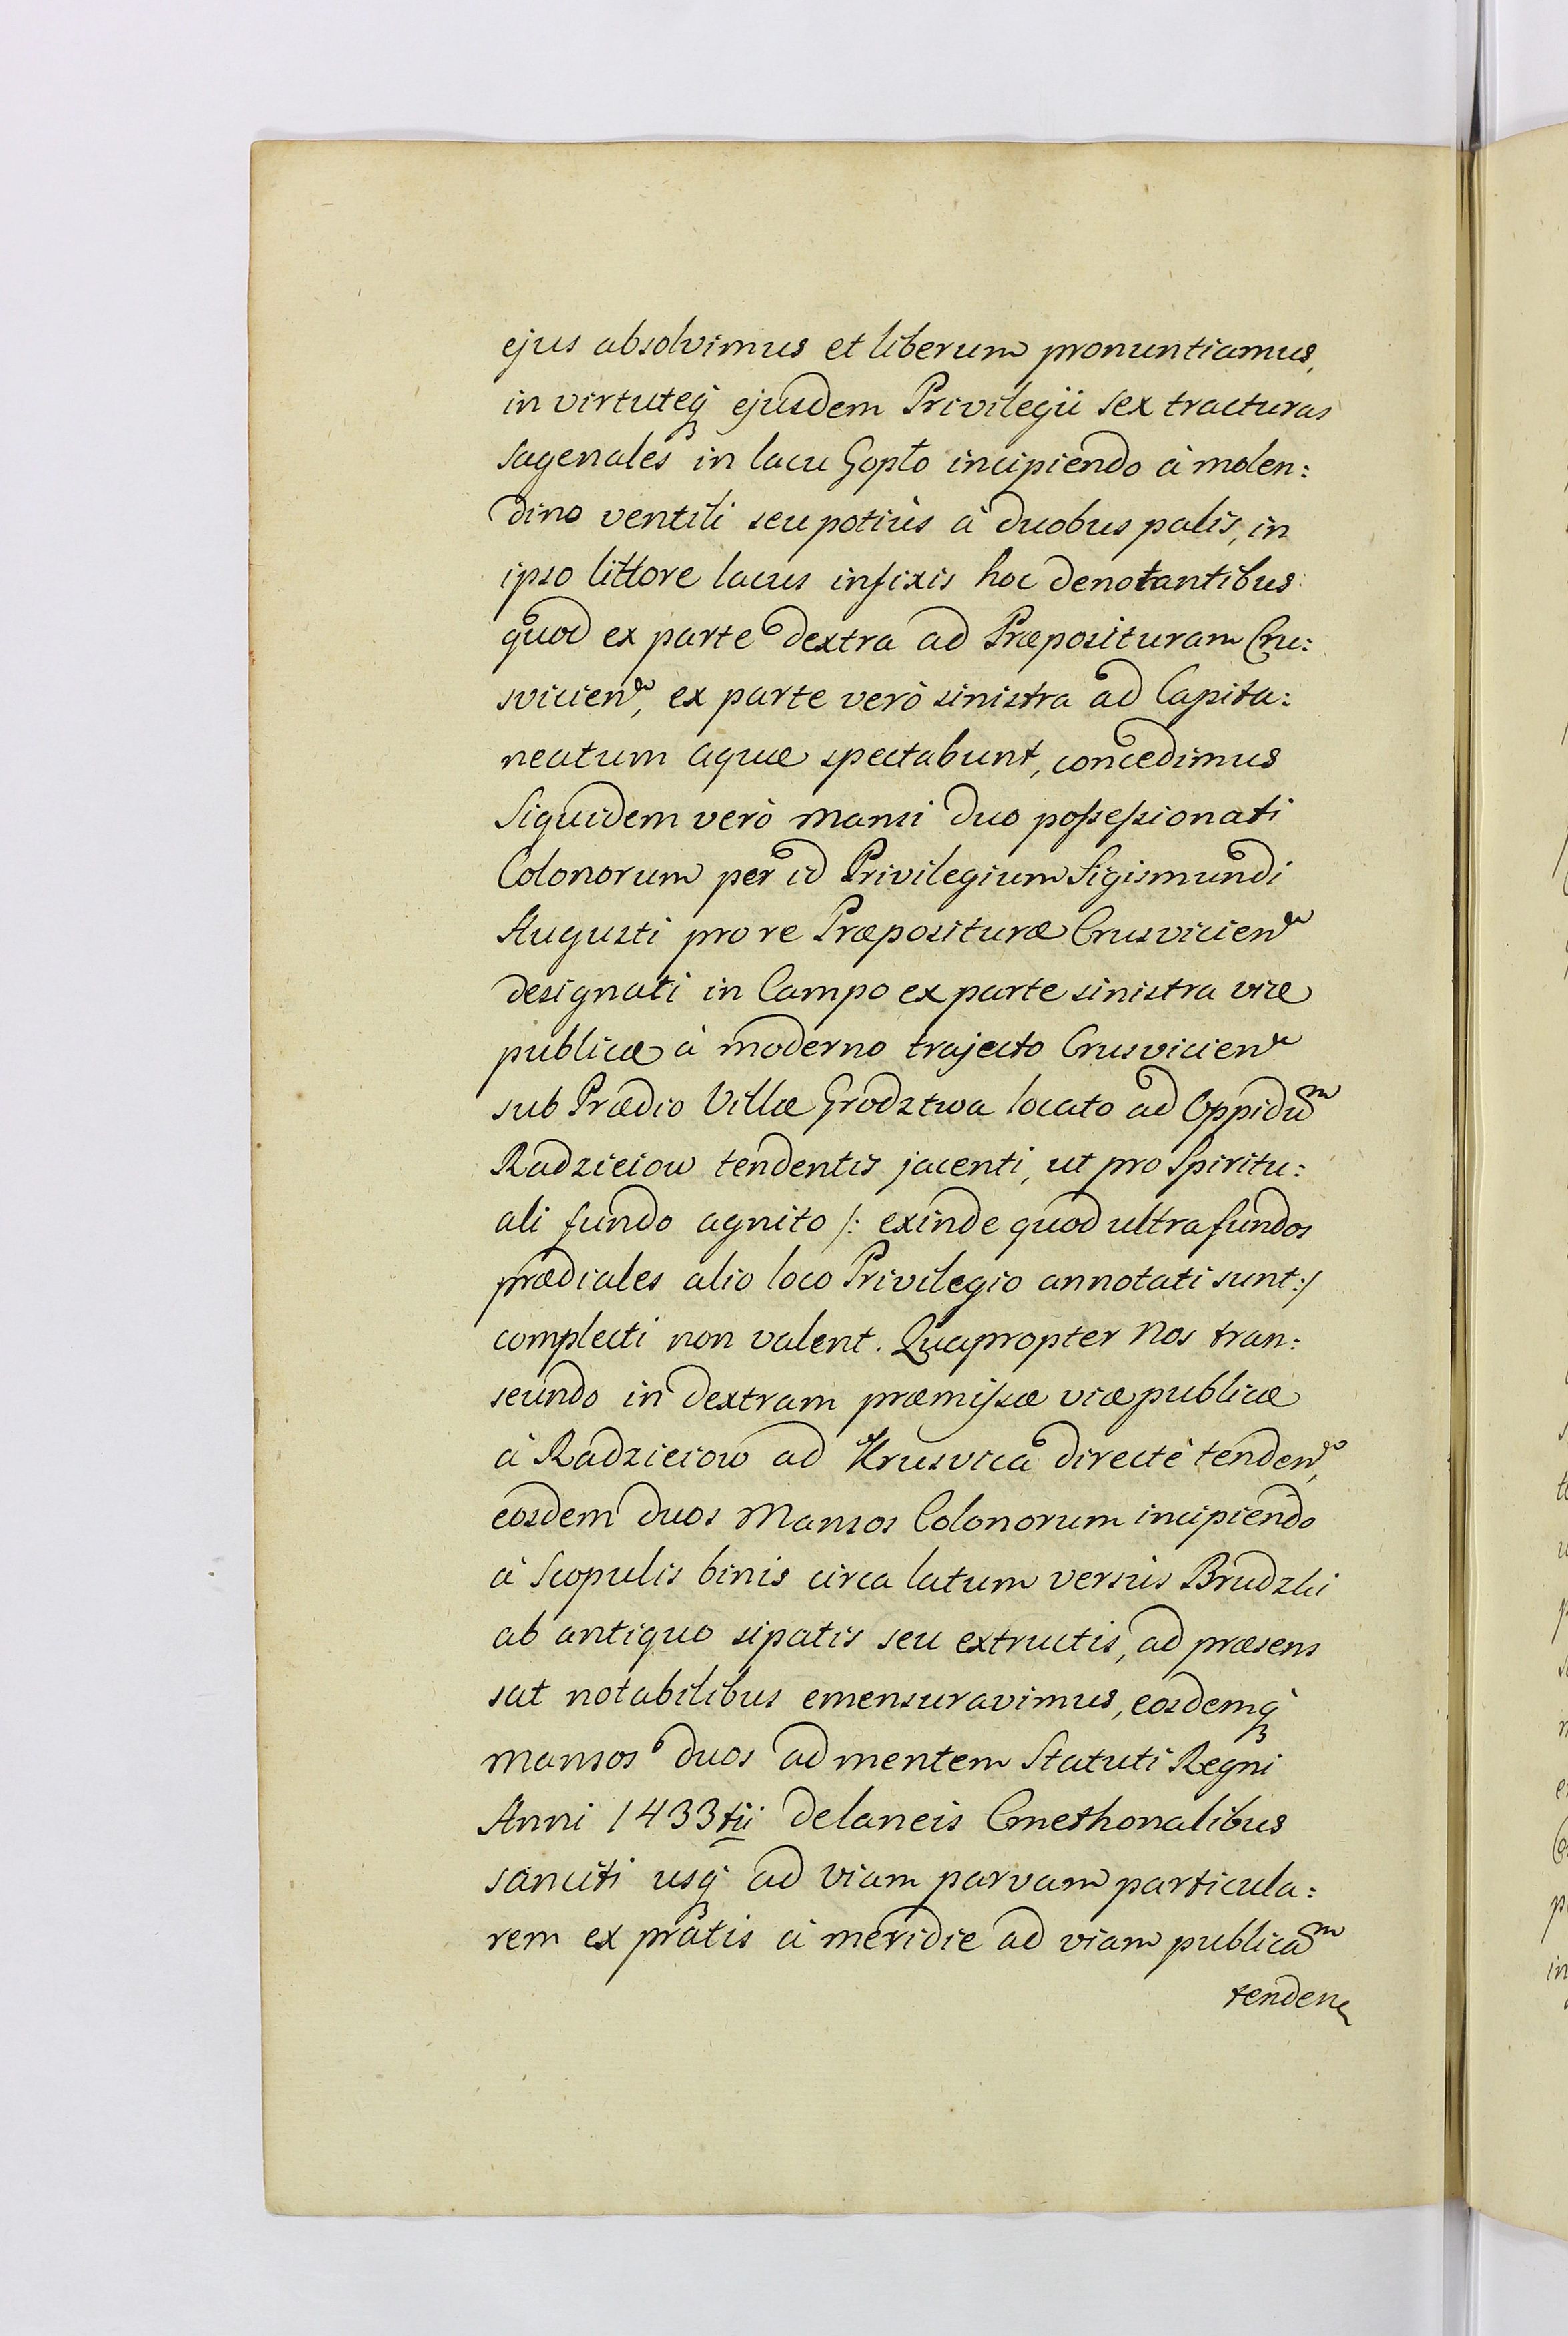 ejus absolvimus et liberum pronuntiamus,
in virtuteq₃ ejusdem Privilegii sex tracturas
sagenales in lacu Gopło incipiendo à molen:
dino ventili seu potiùs à duobus palis, in
ipso littore lacus infixis hoc denotantibus:
quod ex parte dextra ad Præposituram Cru:
svicien͂, ex parte verò sinistra ad Capita:
neatum aquæ spectabunt, concedimus
Siquidem verò mansi duo possessionati
Colonorum per id Privilegium Sigismundi
Augusti pro re Præposituræ Crusvicien͂
designati in Campo ex parte sinistra viæ
publicæ à moderno trajecto Crusvicien͂
sub Prædio Villæ Grodztwa locato ad Oppidum
Radzieiow tendentis jacenti, ut pro Spiritu:
ali fundo agnito /: exinde quod ultra fundos
prædiales alio loco Privilegio annotati sunt :/
complecti non valent. Quapropter Nos tran:
seundo in dextram præmissæ viæ publicæ
à Radzieiow ad Krusvica directè tenden͂,
eosdem duos Mansos Colonorum incipiendo
à Scopulis binis circa latum versùs Brudzki
ab antiquo sipatis seu extructis, ad præsens
sat notabilibus emensuravimus, eosdemq₃
mansos duos ad mentem Statuti Regni
Anni 1433tii de laneis Cmethonalibus
sanciti usq₃ ad viam parvam particula:
rem ex pratis à meridie ad viam publicam
tenden